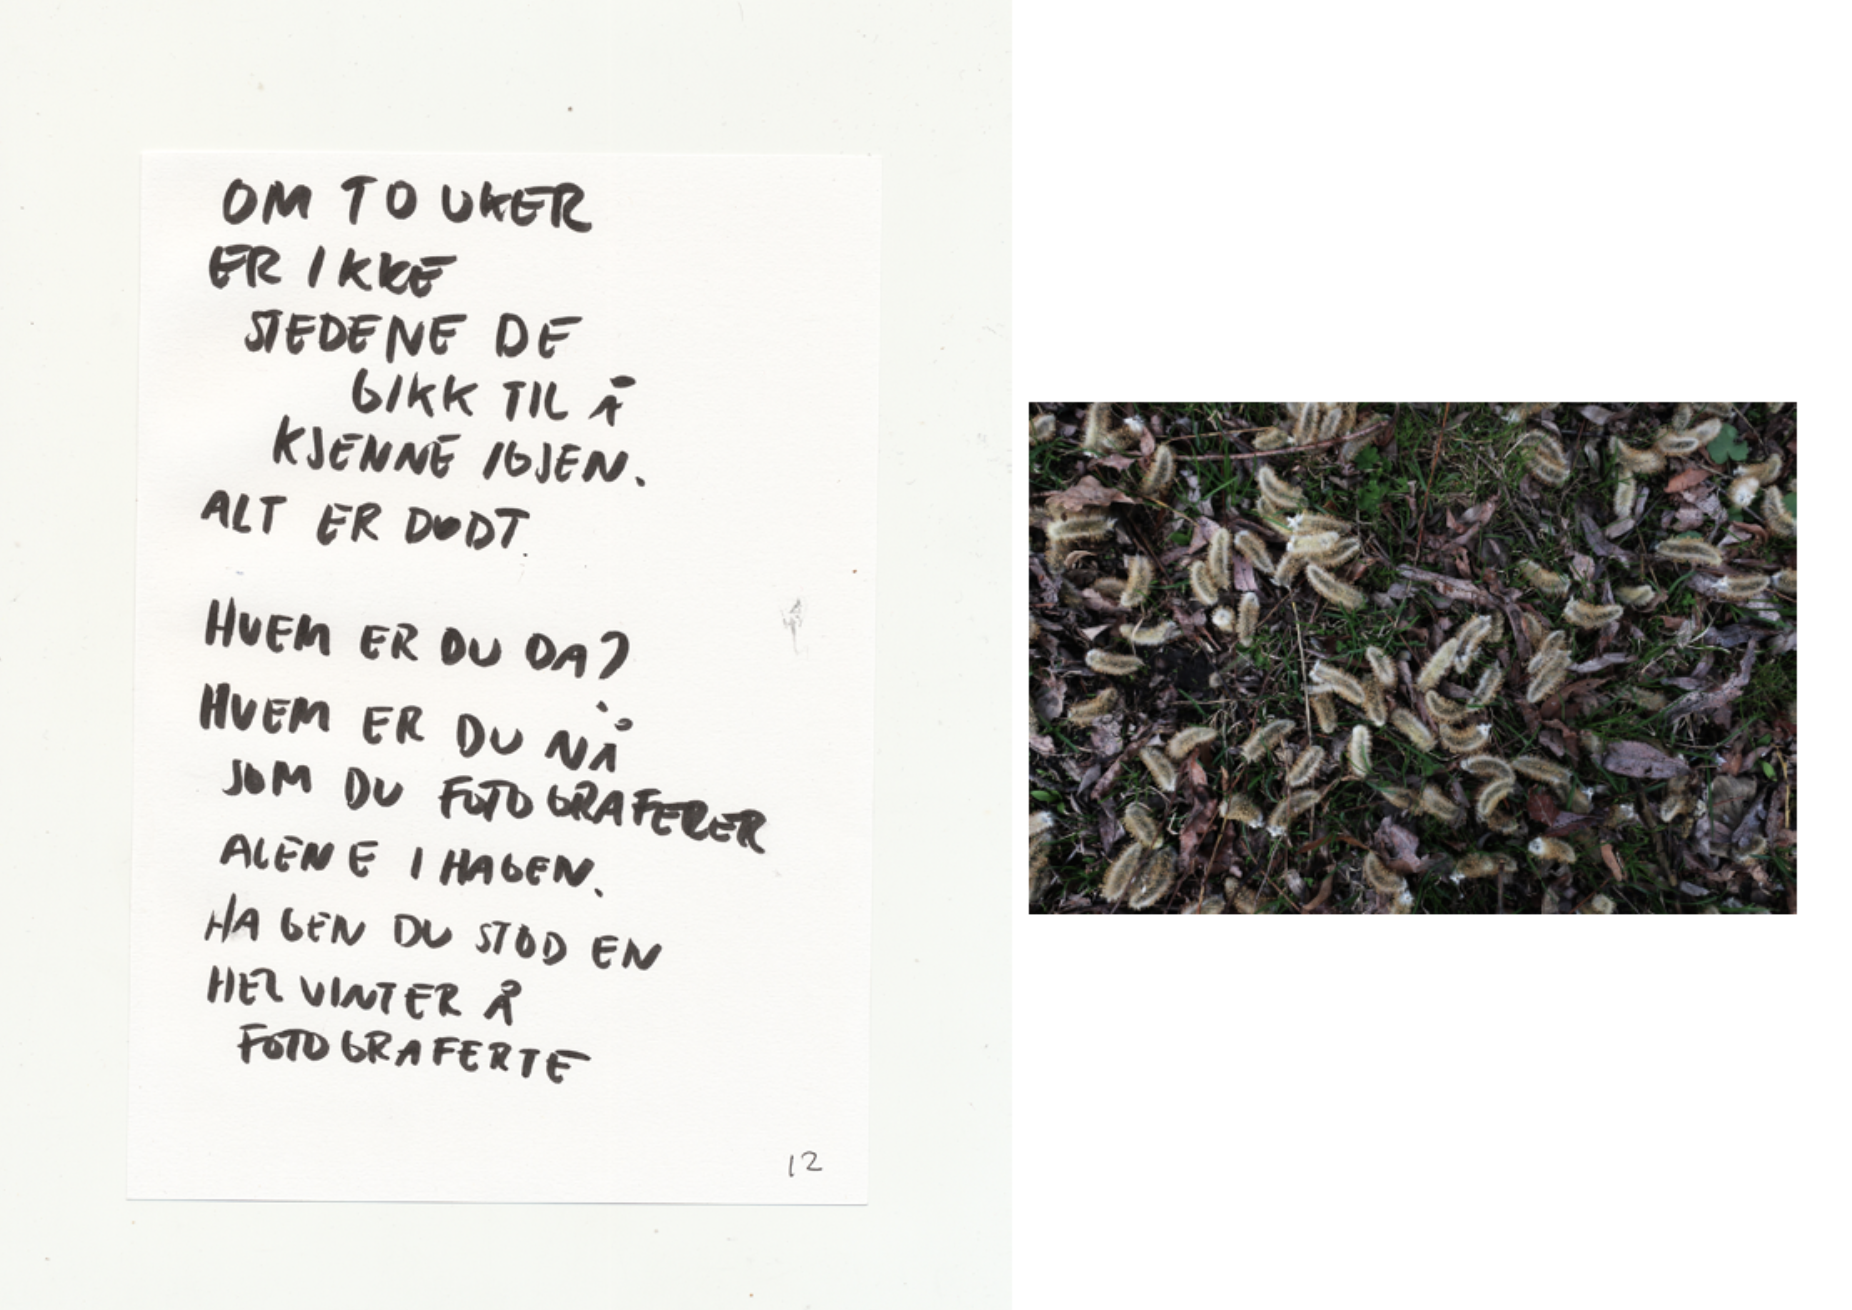 OM TO UKER
ER IKKE
STEDENE DE
GIKK TIL Å
KJENNE IGJEN.
ALT ER DØDT.
HVEM ER DU DA?
HVEM ER DU NÅ
SOM DU FOTOGRAFERER
ALENE I HAGEN.
HAGEN DU STOD EN
HEL VINTER Å
FOTOGRAFERTE
12